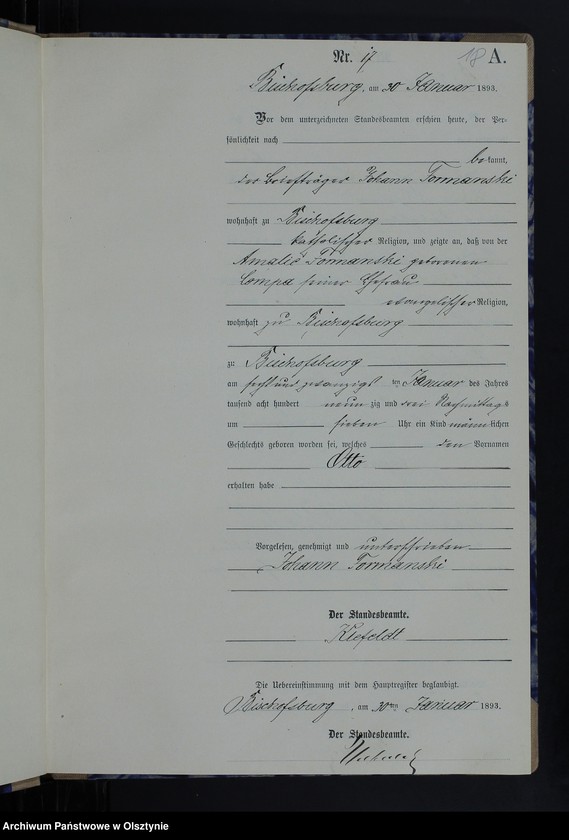 Nr. 17
18 A.
Bischofsburg, am 30 Januar 1893.
Vor dem unterzeichneten Standesbeamten erschien heute, der Per-
sönlichkeit nach
bekannt,
der Briefträger Johann Tomanski
wohnhaft zu Bischofsburg
katholischer Religion, und zeigte an, daß von der
Amalie Tomanski geborenen
Lompa seiner Ehefrau
evangelischer Religion,
wohnhaft zu Bischofsburg
zu Bischofsburg
am sechsundzwanzigsten Januar des Jahres
tausend acht hundert neunzig und drei Nachmittags
um sieben Uhr ein Kind männlichen
Geschlechts geboren worden sei, welches den Vornamen
Otto
erhalten habe
Vorgelesen, genehmigt und unterschrieben
Johann Tomanski
Der Standesbeamte.
Kiefeldt
Die Uebereinstimmung mit dem Hauptregister beglaubigt.
Bischofsburg, am 30ten Januar 1893.
Der Standesbeamte.
Archiwum Państwowe w Olsztynie